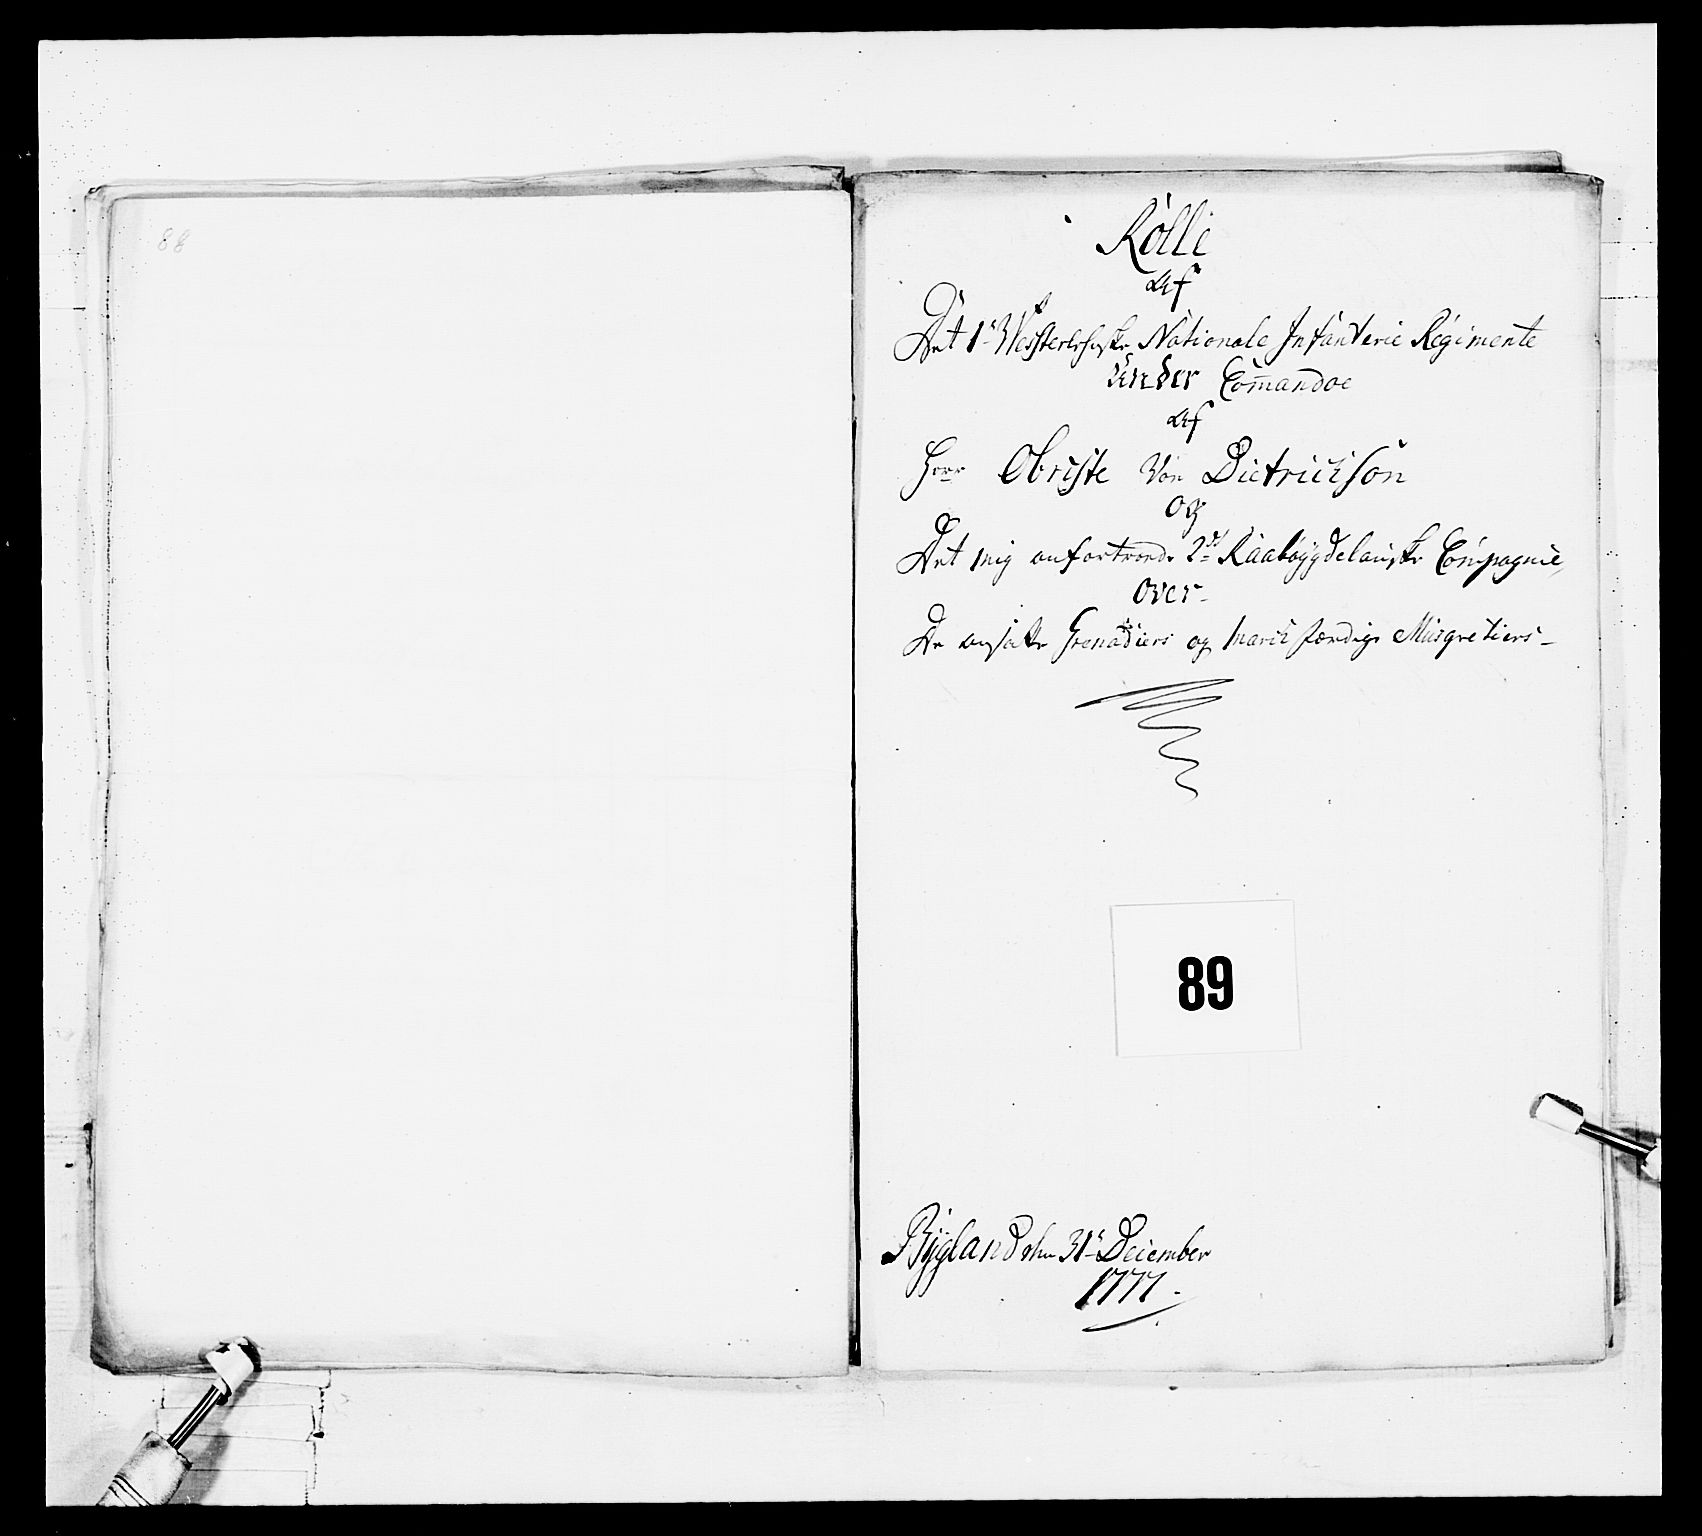 88
Rólle
af
Det 1ᵗᵉ Westerlehnske Nationale Infanterie Regimente
Under Com̄andoe
af
Herr Obriste Von Dietrichson
og
Det mig anfortroede 2ᵈᵉ Raabøygdelauske Compagnie,
over
De ansatte Grenadiers og march færdige Musqvetiers
89
Bygland den 31ᵗᵉ December
1777.